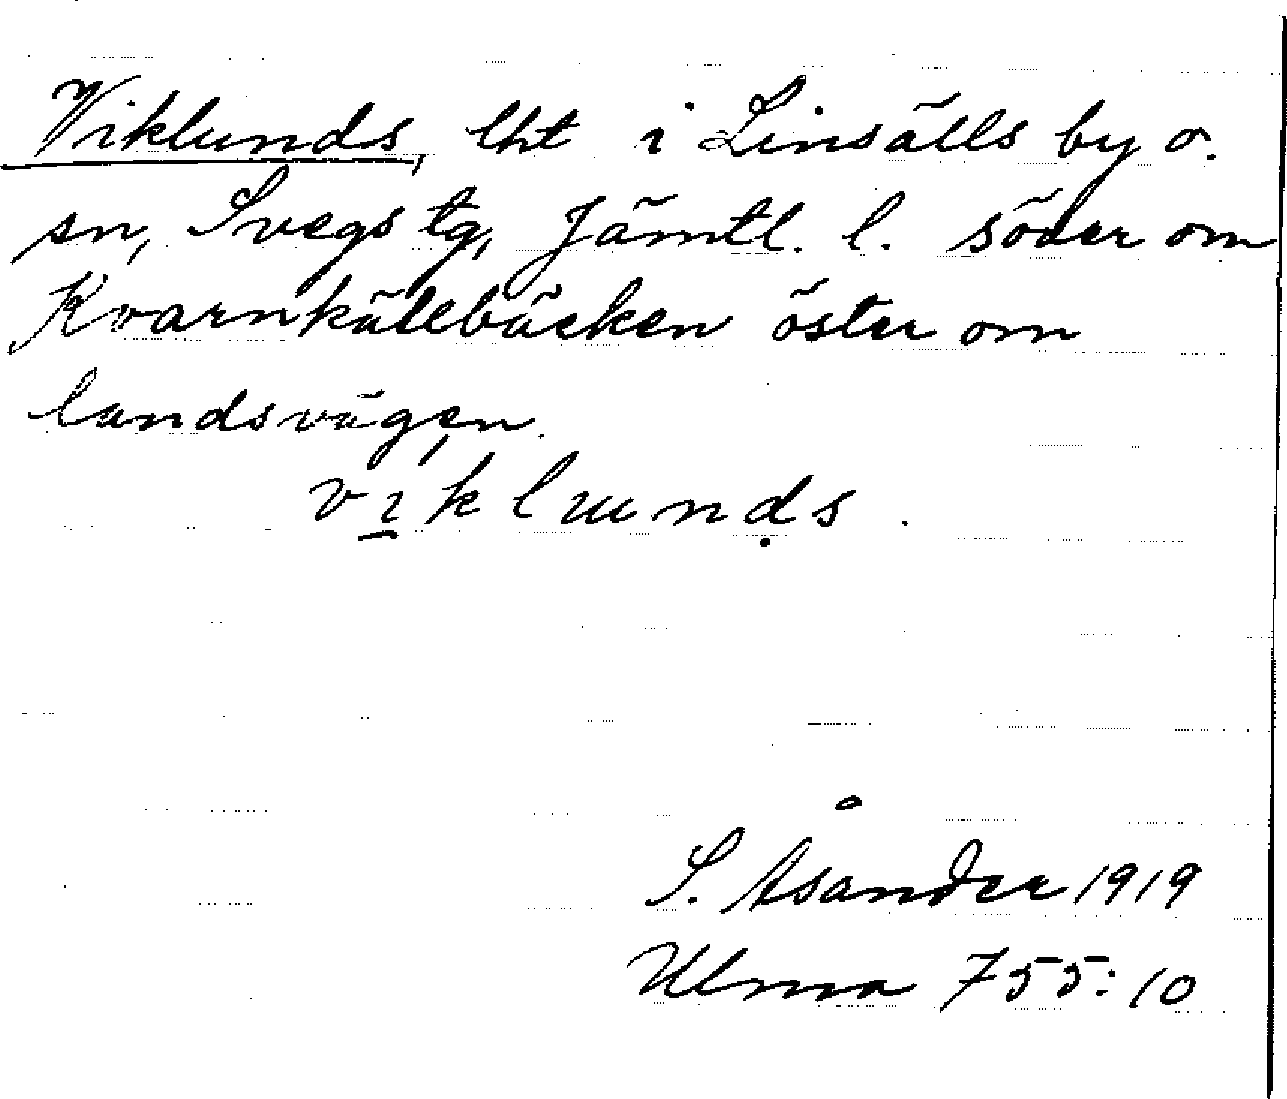 Viklunds, lht i Linsälls by o.
sn, Svegs tg, Jämtl. l. söder om
Kvarnkällbäcken öster om
landsvägen.
viklunds.
S. Åsander 1919
Ulma 755:10